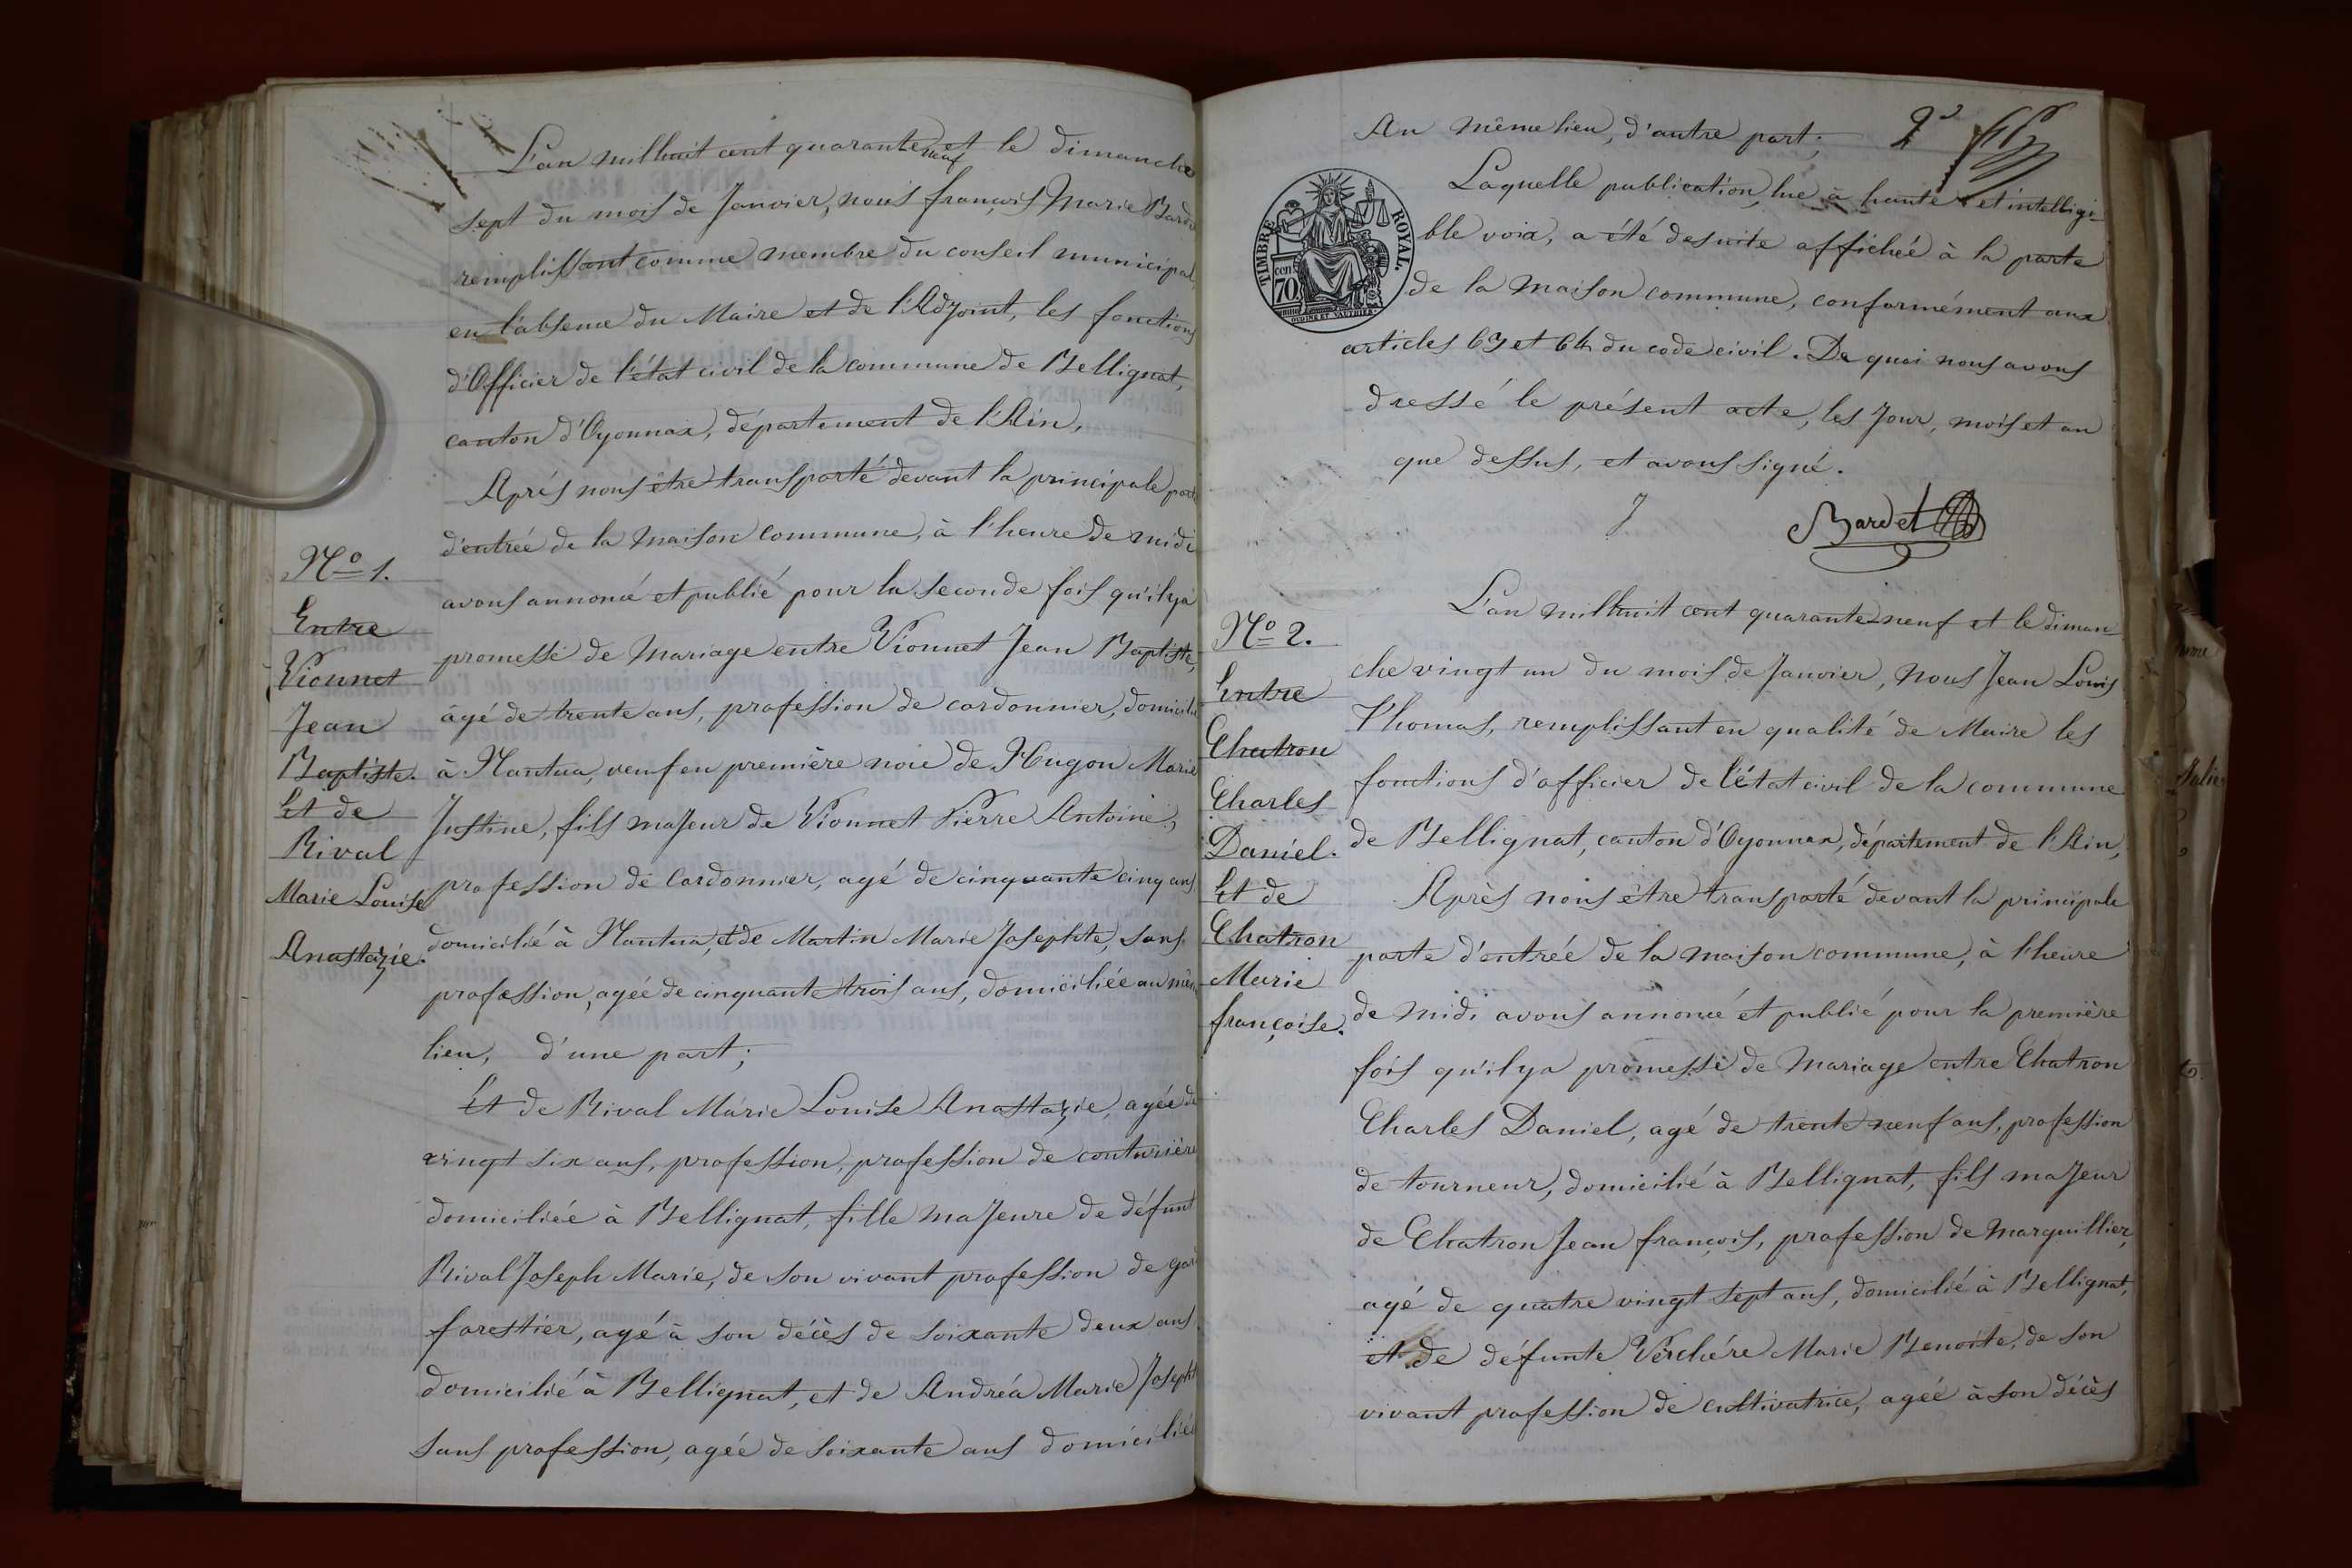 L'an mil huit cent quarante neuf et le dimanche
sept du mois de Janvier, nous françois Marie Bardet
remplissant comme membre du conseil municipal,
en l'absence du Maire et de l'Adjoint, les fonctions
d'Officier de l'état civil de la commune de Bellignat,
canton d'Oyonnax, département de l'Ain,
Après nous être transporté devant la principale porte
d'entrée de la maison commune, à l'heure de midi
avons annoncé et publié pour la seconde fois qu'il y a
promesse de Mariage entre Vionnet Jean Baptiste,
âgé de trente ans, profession de cordonnier, domicilié
à Nantua, veuf en première noie de Hugon Marie
Justine, fils majeur de Vionnet Pierre Antoine,
profession de Cordonnier, agé de cinquante cinq ans,
domicilié à Nantua, et de Martin Marie Josephte, sans
profession, agée de cinquante trois ans, domiciliée au même
lieu, d'une part;
Et de Rival Marie Louise Anastazie, agée de
vingt six ans, profession, profession de couturière
domiciliée à Bellignat, fille majeure de défunt
Rival Joseph Marie, de son vivant profession de gard
forestier, agé à son décès de soixante deux ans
domicilié à Bellignat, et de Andréa Marie Josepht
sans profession, agée de soixante ans domiciliée
No 1.
Entre
Vionnet
Jean
Baptiste.
Et de
Rival
Marie Louise
Anastazie.
Au même lieu, d'autre part;
2
Laquelle publication, lue à haute et intelligi-
ble voix, a été desuite affichée à la porte
de la maison commune, conformément aux
articles 63 et 64 du code civil. De quoi nous avons
dressé le présent acte, les jour, mois et an
que dessus, et avons signé.
Bardet
TIMBRE ROYAL.
70 cen
L'an mil huit cent quarante neuf et le diman-
che vingt un du mois de Janvier, nous Jean Louis
Thomas, remplissant en qualité de Maire les
fonctions d'officier de l'état civil de la commune
de Bellignat, canton d'Oyonnax, département de l'Ain,
Après nous être transporté devant la principale
porte d'entrée de la maison commune, à l'heure
de midi avons annoncé et publié pour la première
fois qu'il y a promesse de Mariage entre Chatron
Charles Daniel, agé de trente neuf ans, profession
de tourneur, domicilié à Bellignat, fils majeur
de Chatron Jean françois, profession de Marguillier,
agé de quatre vingt sept ans, domicilié à Bellignat,
et de défunte Verchére Marie Benoite, de son
vivant profession de cultivatrice, agée à son décès
No 2.
Entre
Chatron
Charles
Daniel.
Et de
Chatron
Marie
françoise.